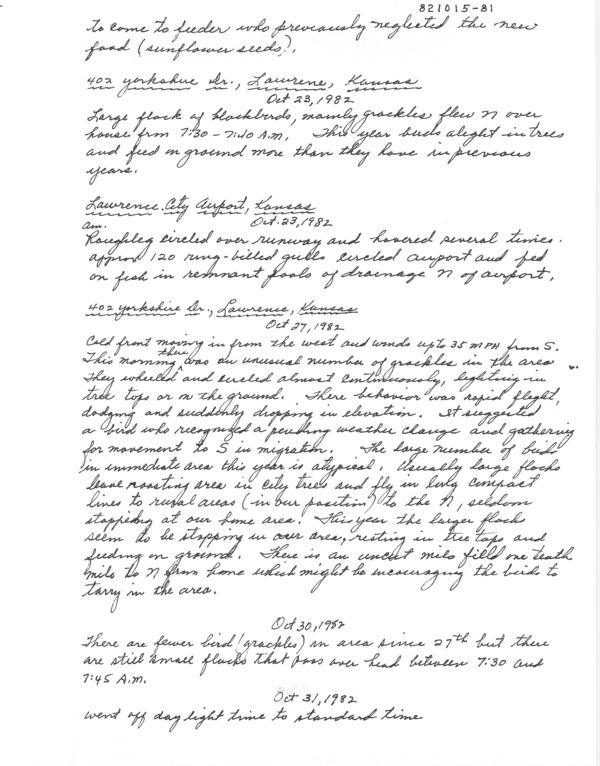 821015-81
to come to feeder who previously neglected the new
food (sunflower seeds).
402 Yorkshire Dr., Lawrene, Kansas
Oct 23, 1982
Large flock of blackbirds, mainly grackles flew N over
house from 7:30 - 7:40 A.M. This year birds alight in trees
and feed on ground more than they have in previous
years.
Lawrence City Airport, Kansas
am. Oct. 23, 1982
Roughleg circled over runway and hovered several times.
approx 120 ring-billed gulls circled airport and fed
on fish in remnant pools of drainage N of airport.
402 Yorkshire Dr., Lawrence, Kansas
Oct 27, 1982
Cold front moving in from the west and winds up to 35 MPH from S.
This morning there was an unusual number of grackles in the area
They wheeled and circled almost continuously, lighting in
tree tops or on the ground. There behavior was rapid flight,
dodging and suddenly dropping in elevation. It suggested
a bird who recognized a pending weather change and gathering
for movement to S in migration. The large number of birds
in immediate area this year is atypical. Usually large flocks
leave roosting area in city trees and fly in long compact
lines to rural areas (in our position) to the N, seldom
stopping at our home area. This year the larger flocks
seem to be stopping in our area, resting in tree tops and
feeding on ground. There is an uncut milo field one tenth
mile to N from home which might be encouraging the birds to
tarry in the area.
Oct 30, 1982
There are fewer bird (grackles) in area since 27th but there
are still small flocks that pass over head between 7:30 and
7:45 A.M.
Oct 31, 1982
went off day light time to standard time